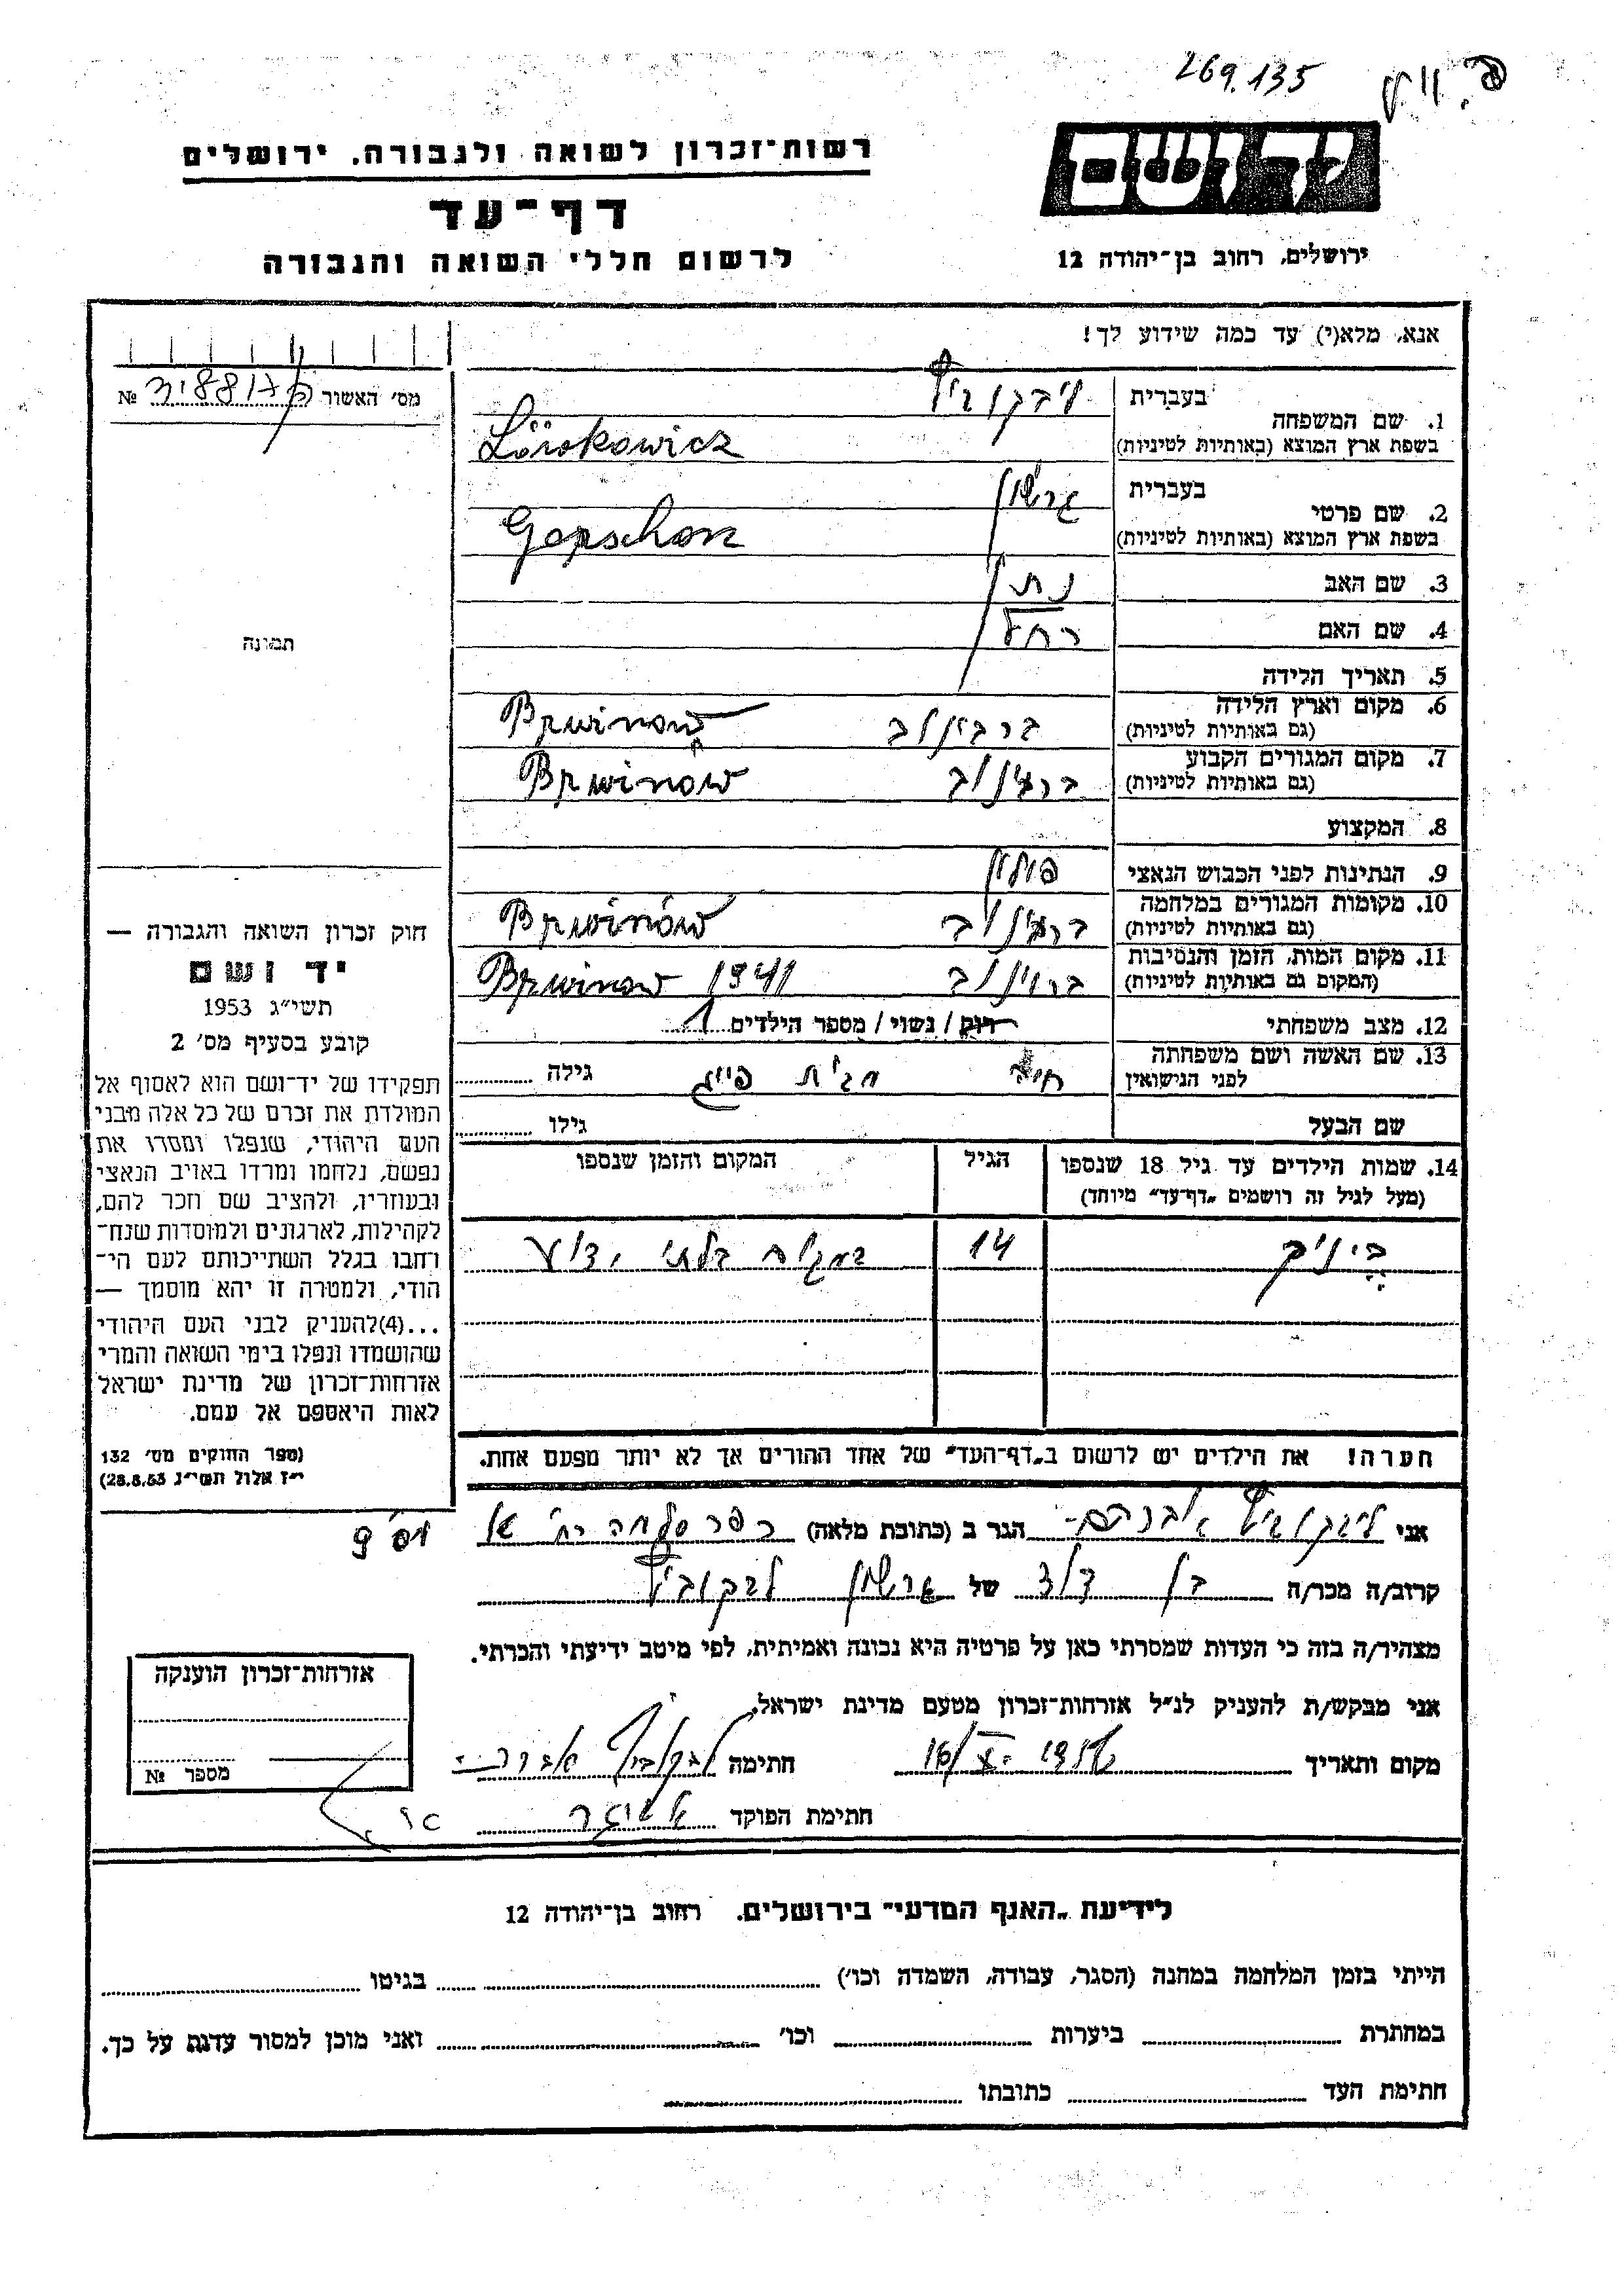 269.135
רשות־זכרון לשואה ולגבורה. ירושלים
יד ושם
דף־עד
לרשום חללי השואה והגבורה
ירושלים, רחוב בן־יהודה 12
אנא, מלא(י) עד כמה שידוע לך!
מס׳ האשור №
1. שם המשפחה
בעברית
בשפת ארץ המוצא (באותיות לטיניות)
2. שם פרטי
בעברית גרשון
בשפת ארץ המוצא (באותיות לטיניות) Gerschon
3. שם האב נתן
4. שם האם רחל
5. תאריך הלידה
6. מקום וארץ הלידה ברבינוב Brwinow
(גם באותיות לטיניות)
7. מקום המגורים הקבוע Brwinów
(גם באותיות לטיניות)
8. המקצוע
9. הנתינות לפני הכבוש הנאצי פולין
10. מקומות המגורים במלחמה Brwinów
(גם באותיות לטיניות)
11. מקום המות, הזמן והנסיבות ברוינוב Brwinow 1941
(המקום גם באותיות לטיניות)
12. מצב משפחתי רווק / נשוי / מספר הילדים 1
13. שם האשה ושם משפחתה
לפני הנישואין גילה
שם הבעל גילו
14. שמות הילדים עד גיל 18 שנספו הגיל המקום והזמן שנספו
(מעל לגיל זה רושמים „דף־עד״ מיוחד)
14 במקום בלתי ידוע
הערה! את הילדים יש לרשום ב„דף־העד״ של אחד ההורים אך לא יותר מפעם אחת.
תמונה
חוק זכרון השואה והגבורה —
יד ושם
תשי״ג 1953
קובע בסעיף מס׳ 2
תפקידו של יד־ושם הוא לאסוף אל
המולדת את זכרם של כל אלה מבני
העם היהודי, שנפלו ומסרו את
נפשם, נלחמו ומרדו באויב הנאצי
ובעוזריו, ולהציב שם וזכר להם,
לקהילות, לארגונים ולמוסדות שנח־
רבו בגלל השתייכותם לעם הי־
הודי, ולמטרה זו יהא מוסמך —
...(4)להעניק לבני העם היהודי
שהושמדו ונפלו בימי השואה והמרי
אזרחות־זכרון של מדינת ישראל
לאות היאספם אל עמם.
(ספר החוקים מס׳ 132
י״ז אלול תשי״ג 28.8.53)
אני הגר ב (כתובת מלאה)
קרוב/ה מכר/ה בן דוד של גרשון
מצהיר/ה בזה כי העדות שמסרתי כאן על פרטיה היא נכונה ואמיתית, לפי מיטב ידיעתי והכרתי.
אני מבקש/ת להעניק לנ״ל אזרחות־זכרון מטעם מדינת ישראל.
מקום ותאריך חתימה
חתימת הפוקד
אזרחות־זכרון הוענקה
מספר №
לידיעת „האגף המדעי״ בירושלים. רחוב בן־יהודה 12
הייתי בזמן המלחמה במחנה (הסגר, עבודה, השמדה וכו׳) בגיטו
במחתרת ביערות וכו׳ ואני מוכן למסור עדות על כך.
חתימת העד כתובתו